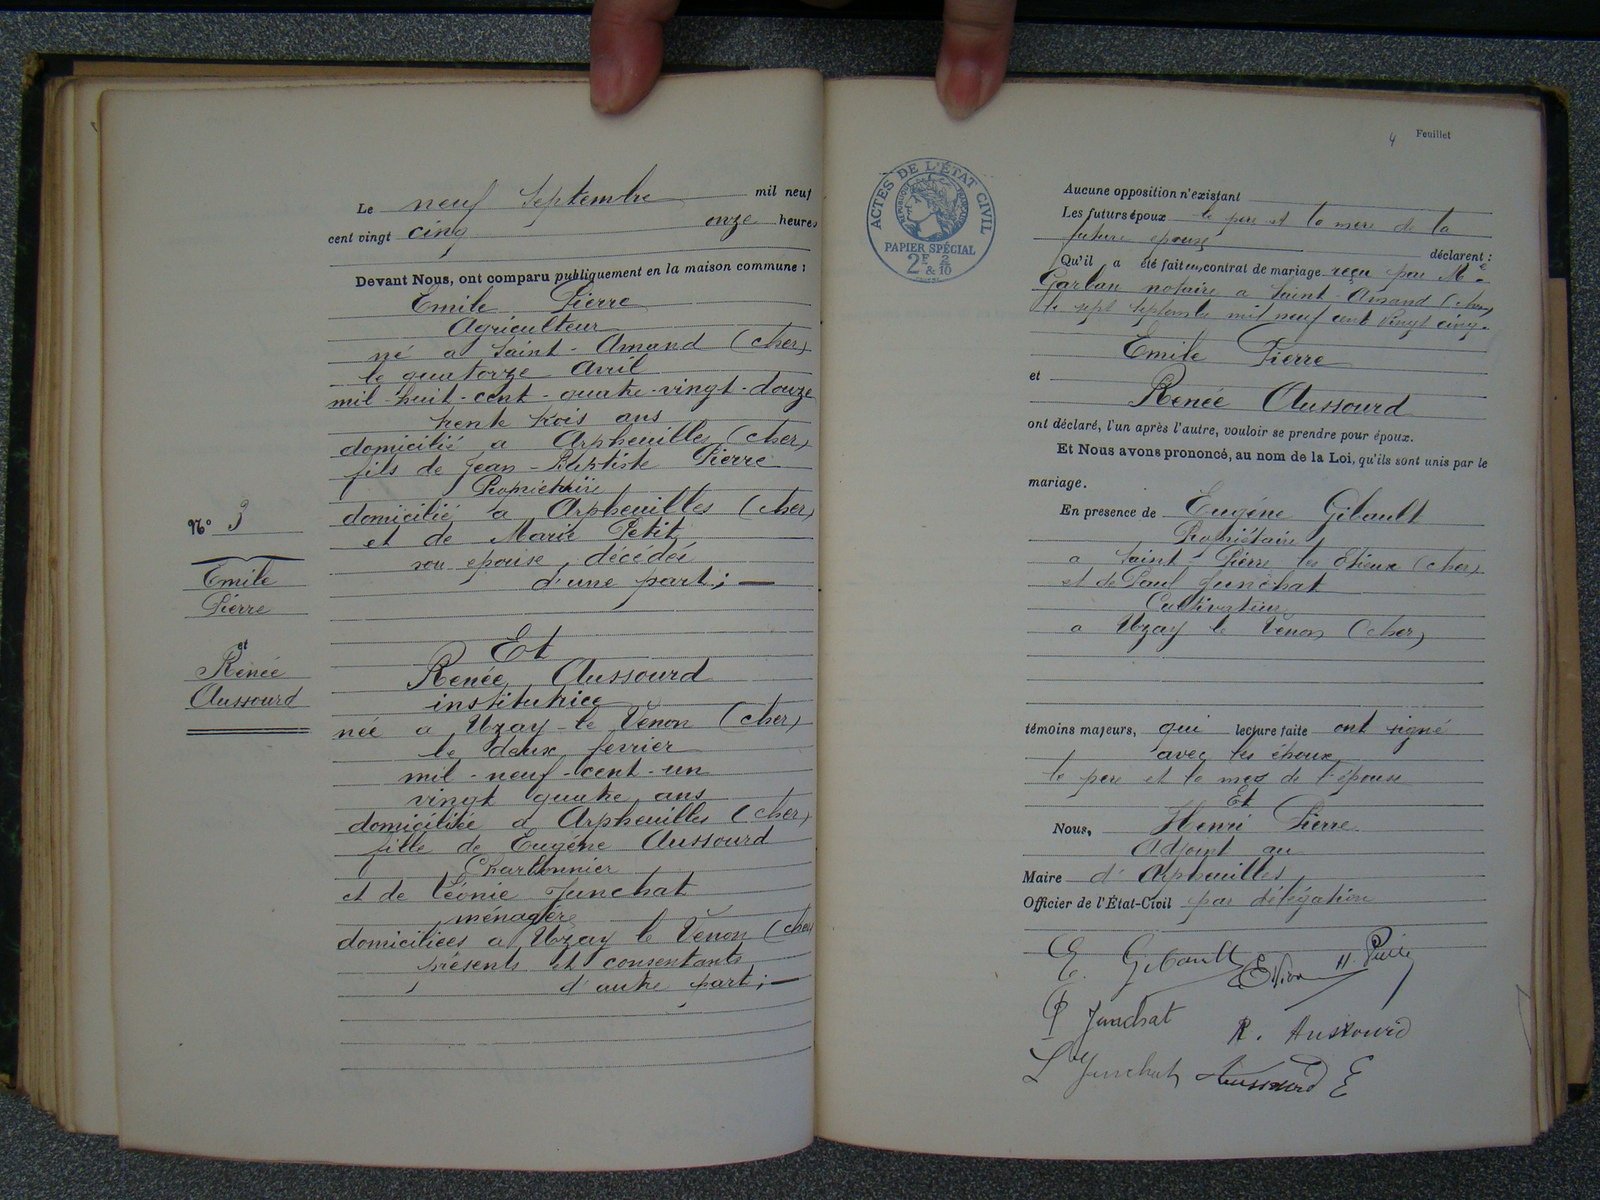 Le neuf Septembre mil neuf
cent vingt cinq onze heures
Devant Nous, ont comparu publiquement en la maison commune :
Emile Pierre
Agriculteur
né a Saint-Amand (cher)
le quatorze Avril
mil-huit-cent-quatre-vingt-douze
trente trois ans
domicilié a Arpheuilles (cher)
fils de Jean-Baptiste Pierre
Propriétaire
domicilié a Arpheuilles (cher)
et de Marie Petit
son epouse, décédée
d'une part ; —
N° 3
Emile
Pierre
et
Renée
Aussourd
Et
Renée Aussourd
institutrice
née a Uzay-le Venon (cher)
le deux fevrier
mil-neuf-cent-un
vingt quatre ans
domiciliée a Arpheuilles (cher)
fille de Eugéne Aussourd
Charbonnier
et de Léonie Junchat
ménagère
domiciliees a Uzay le Venon (cher)
présents et consentants
d'autre part ; —
4 Feuillet
ACTES DE L'ÉTAT CIVIL
RÉPUBLIQUE FRANÇAISE
PAPIER SPÉCIAL
2F & 2/10
Aucune opposition n'existant
Les futurs époux le pere et la mere de la
future epouse déclarent :
Qu'il a été fait un contrat de mariage reçu par Me
notaire a Saint-Amand (cher)
le sept Septembre mil neuf cent vingt cinq.
Emile Pierre
et
Renée Aussourd
ont déclaré, l'un après l'autre, vouloir se prendre pour époux.
Et Nous avons prononcé, au nom de la Loi, qu'ils sont unis par le
mariage.
En presence de Eugéne Gibault
Propriétaire
a Saint-Pierre les Etieux (cher)
et de Paul Junchat
Cultivateur
a Uzay le Venon (cher)
témoins majeurs, qui lecture faite ont signé
avec les époux
le pere et la mere de l'épouse
Et
Nous, Henri Pierre
Adjoint au
Maire d'Arpheuilles
Officier de l'État-Civil par délégation
E. Gibault H. Pierre
P Junchat R. Aussourd
L Junchat Aussourd E